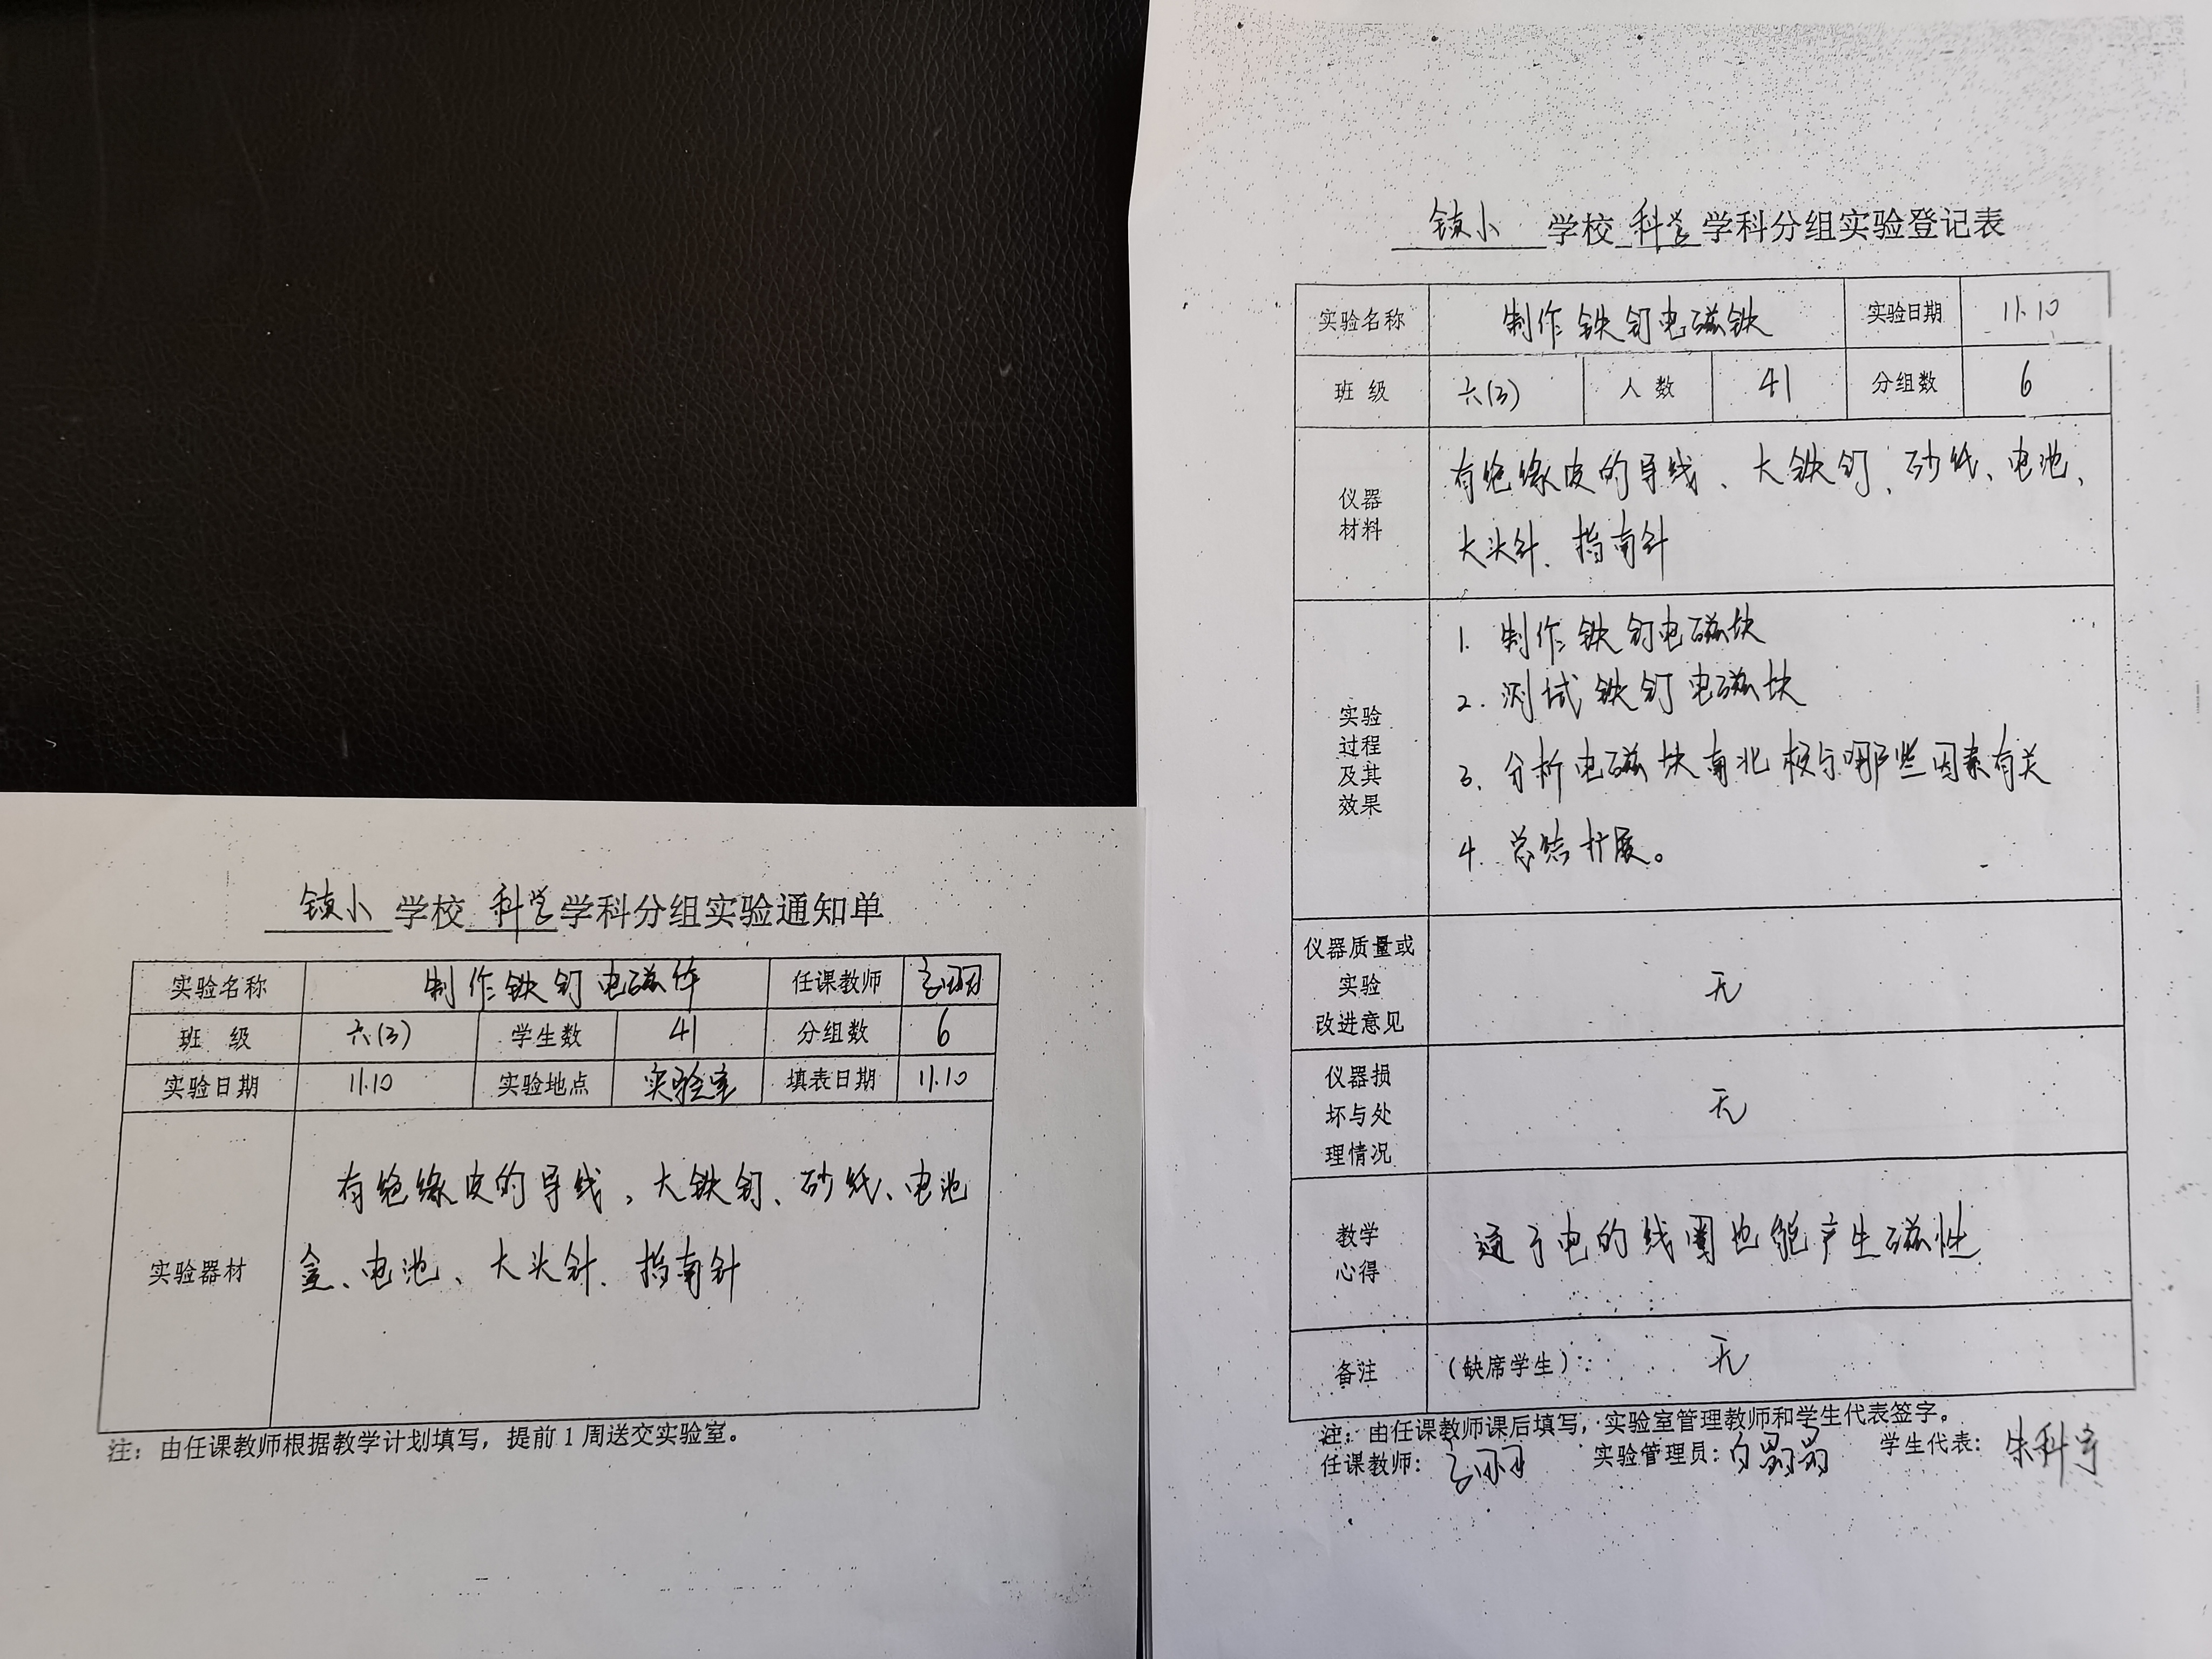 镇小 学校 科学 学科分组实验通知单
实验名称 制作铁钉电磁作 任课教师
班 级 六(3) 学生数 41 分组数 6
实验日期 11.10 实验地点 实验室 填表日期 11.10
实验器材 有绝缘皮的导线、大铁钉、砂纸、电池
盒、电池、大头针、指南针
注：由任课教师根据教学计划填写，提前1周送交实验室。
镇小 学校 科学 学科分组实验登记表
实验名称 制作铁钉电磁铁 实验日期 11.10
班 级 六(3) 人 数 41 分组数 6
仪器
材料
有绝缘皮的导线、大铁钉、砂纸、电池、
大头针、指南针
实验
过程
及其
效果
1. 制作铁钉电磁块
2. 测试铁钉电磁块
3. 分析电磁块南北极与哪些因素有关
4. 总结扩展。
仪器质量或
实验
改进意见
无
仪器损
坏与处
理情况
无
教学
心得
通了电的线圈也能产生磁性
备注 （缺席学生）： 无
注：由任课教师课后填写，实验室管理教师和学生代表签字。
任课教师： 实验管理员：白晶晶 学生代表：朱科宇